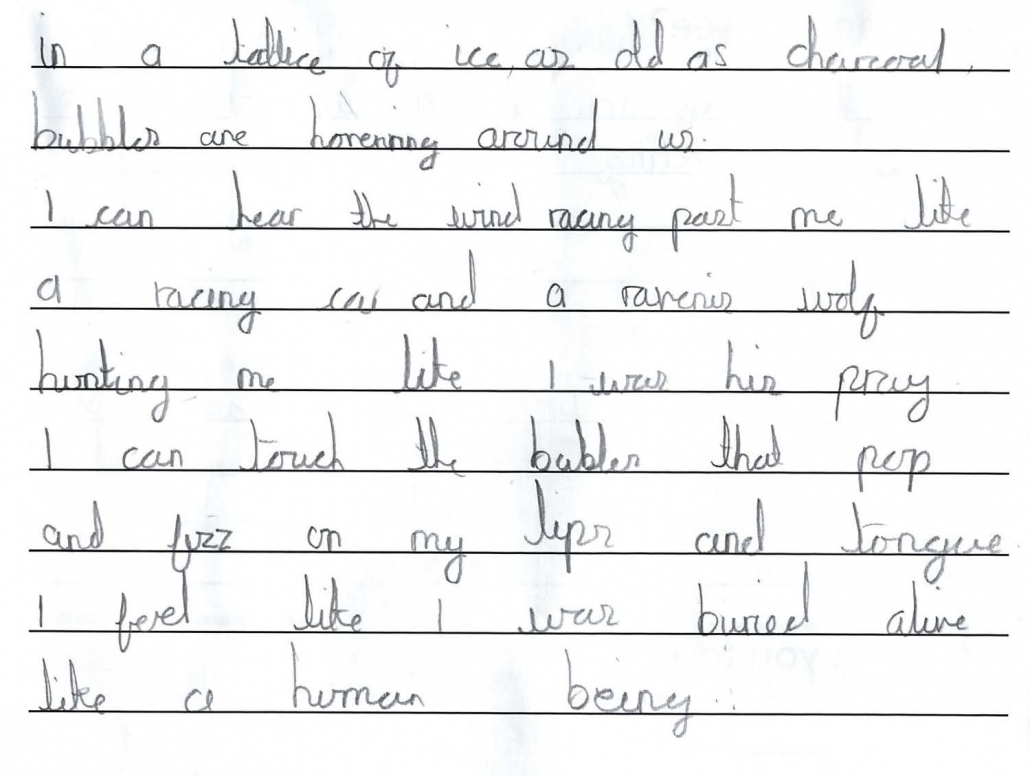 in a lattice of ice, as old as charcoal,
bubbles are horening around us.
I can hear the wind racing past me like
a racing car and a ravenis wolf
hunting me like I was his pray
I can touch the bubbles that pop
and fuzz on my lips and tongue.
I feel like I was buried alive
like a human being.